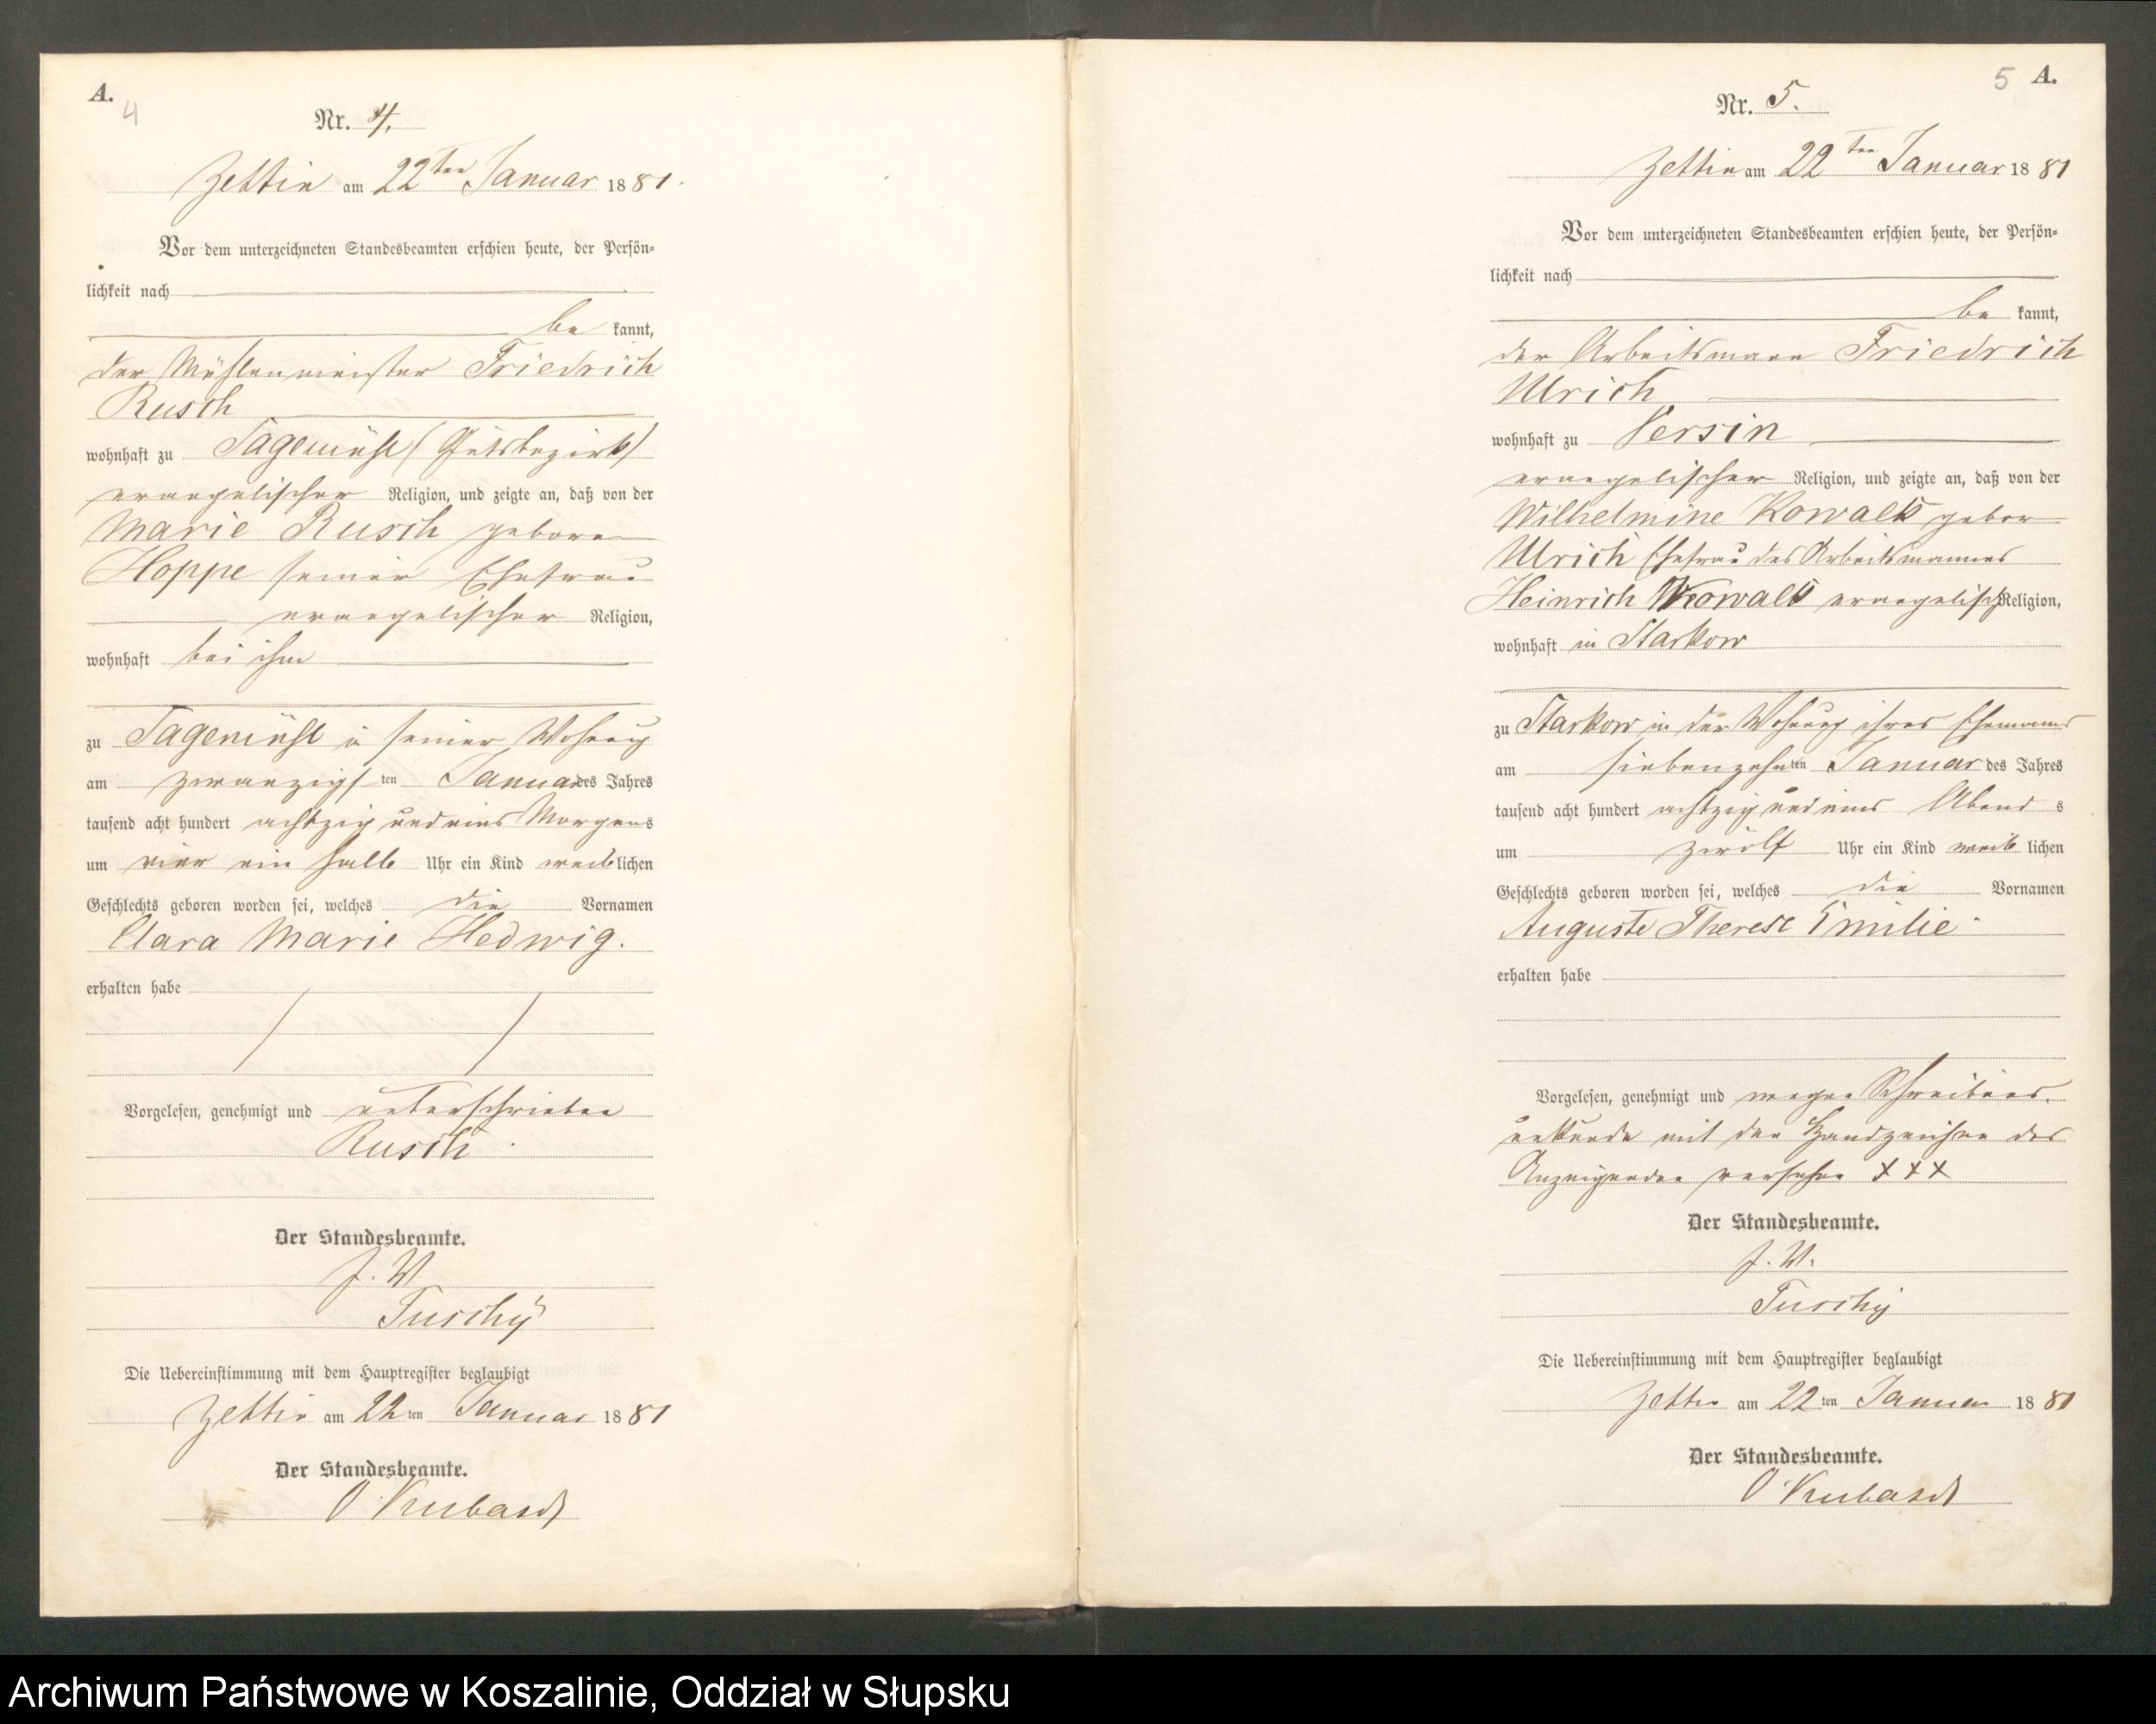 A.
4
Nr. 4.
Zettin am 22ten Januar 1881.
Vor dem unterzeichneten Standesbeamten erschien heute, der Persön-
lichkeit nach
be kannt,
der Mühlenmeister Friedrich
Rusch
wohnhaft zu Sagemühl (Gutsbezirk)
evangelischer Religion, und zeigte an, daß von der
Marie Rusch geboren
Hoppe seiner Ehefrau
evangelischer Religion,
wohnhaft bei ihm
zu Sagemühl in seiner Wohnung
am zwanzigsten Januar des Jahres
tausend acht hundert achtzig und eins Morgens
um vier ein halb Uhr ein Kind weiblichen
Geschlechts geboren worden sei, welches die Vornamen
Clara Marie Hedwig.
erhalten habe
Vorgelesen, genehmigt und unterschrieben
Rusch.
Der Standesbeamte.
J. V.
Tuschy
Die Uebereinstimmung mit dem Hauptregister beglaubigt
Zettin am 22ten Januar 1881
Der Standesbeamte.
5 A.
Nr. 5.
Zettin am 22ten Januar 1881
Vor dem unterzeichneten Standesbeamten erschien heute, der Persön-
lichkeit nach
be kannt,
der Arbeitsmann Friedrich
Ulrich
wohnhaft zu Versin
evangelischer Religion, und zeigte an, daß von der
Wilhelmine Kowalk gebor
Ulrich Ehefrau des Arbeitsmannes
Heinrich Kowalk evangelisch Religion,
wohnhaft in Starkow
zu Starkow in der Wohnung ihres Ehemanns
am siebenzehnten Januar des Jahres
tausend acht hundert achtzig und eins Abends
um zwölf Uhr ein Kind weiblichen
Geschlechts geboren worden sei, welches die Vornamen
Auguste Therese Emilie.
erhalten habe
Vorgelesen, genehmigt und wegen Schreibens
unkunde mit den Handzeichen des
Anzeigenden versehen + + +
Der Standesbeamte.
J. V.
Tuschy
Die Uebereinstimmung mit dem Hauptregister beglaubigt
Zettin am 22ten Januar 1881
Der Standesbeamte.
Archiwum Państwowe w Koszalinie, Oddział w Słupsku